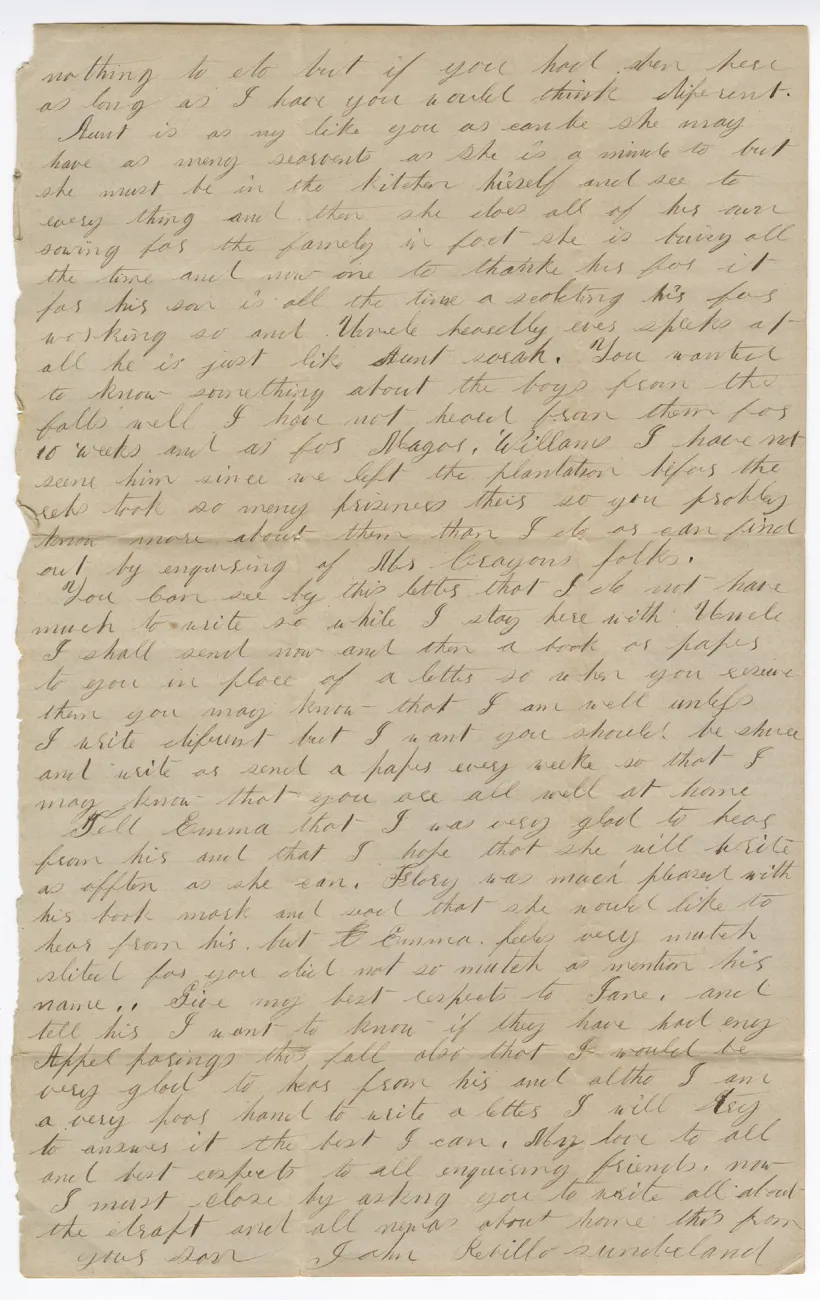 nothing to do but if you had ben here
as long as I have you would think diferent.
Aunt is as ny like you as can be she may
have as meny searvents as she is a minde to but
she must be in the kitchen hirself and see to
every thing and then she does all of hir own
sowing for the famely in foct she is buisy all
the time and now one to thanke hir for it
for hir son is all the time a scolding hir for
working so and Unncle heardly ever speeks at
all he is just like Aunt sarah. You wanted
to know something about the boys from the
falls well I have not heard from them for
10 weeks and as for Magor. Willams I have not
seene him since we left the plantation before the
rebs took so meny prisners their so you probbly
know more about them than I do or can find
out by enquiring of Mrs Crayons folks.
You Can see by this letter that I do not have
much to write so while I stay here with Unncle
I shall send now and then a book or paper
to you in place of a letter so when you receive
them you may know that I am well unless
I write diferent but I want you should be shure
and write or send a paper every weeke so that I
may know that you are all well at home
Tell Emma that I was very glad to hear
from hir and that I hope that she will write
as offten as she can. Flory was much pleased with
hir book mark and sead that she would like to
hear from hir. but Emma feels very mutch
slited for you did not so mutch as mention hir
name.. Give my best respects to Jane. and
tell hir I want to know if they have had eny
Appel parings this fall also that I would be
very glad to hear from hir and altho I am
a very poor hand to write a letter I will try
to answer it the best I can. My love to all
and best respects to all enquiring friends. now
I must close by asking you to write all about
the draft and all newas about home this from
your son I am Revillo sunderland